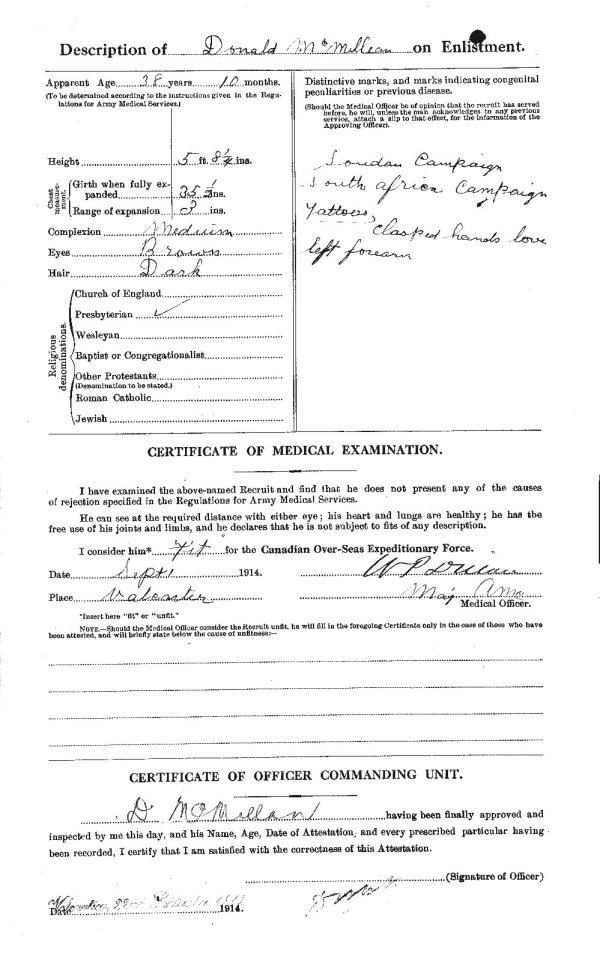 Description of Donald McMillan on Enlistment.
Apparent Age 38 years 10 months.
(To be determined according to the instructions given in the Regu-
lations for Army Medical Services.)
Height 5 ft. 8½ ins.
Chest measure-ment.
Girth when fully ex-
panded 35½ ins.
Range of expansion 3 ins.
Complexion Meduim
Eyes Brown
Hair Dark
Religious denominations.
Church of England
Presbyterian ✓
Wesleyan
Baptist or Congregationalist
Other Protestants
(Denomination to be stated.)
Roman Catholic
Jewish
Distinctive marks, and marks indicating congenital
peculiarities or previous disease.
(Should the Medical Officer be of opinion that the recruit has served
before, he will, unless the man acknowledges to any previous
service, attach a slip to that effect, for the information of the
Approving Officer).
Soudan Campaign
South African Campaign
Tattoes,
Clasped hands love
left forearm
CERTIFICATE OF MEDICAL EXAMINATION.
I have examined the above-named Recruit and find that he does not present any of the causes
of rejection specified in the Regulations for Army Medical Services.
He can see at the required distance with either eye; his heart and lungs are healthy; he has the
free use of his joints and limbs, and he declares that he is not subject to fits of any description.
I consider him* Fit for the Canadian Over-Seas Expeditionary Force.
Date Sept 1 1914.
Place Valcartier
Maj AMC
Medical Officer.
*Insert here "fit" or "unfit."
NOTE.—Should the Medical Officer consider the Recruit unfit, he will fill in the foregoing Certificate only in the case of those who have
been attested, and will briefly state below the cause of unfitness:—
CERTIFICATE OF OFFICER COMMANDING UNIT.
D McMillan having been finally approved and
inspected by me this day, and his Name, Age, Date of Attestation, and every prescribed particular having
been recorded, I certify that I am satisfied with the correctness of this Attestation.
(Signature of Officer)
Valcartier, 22nd September
Date 1914.